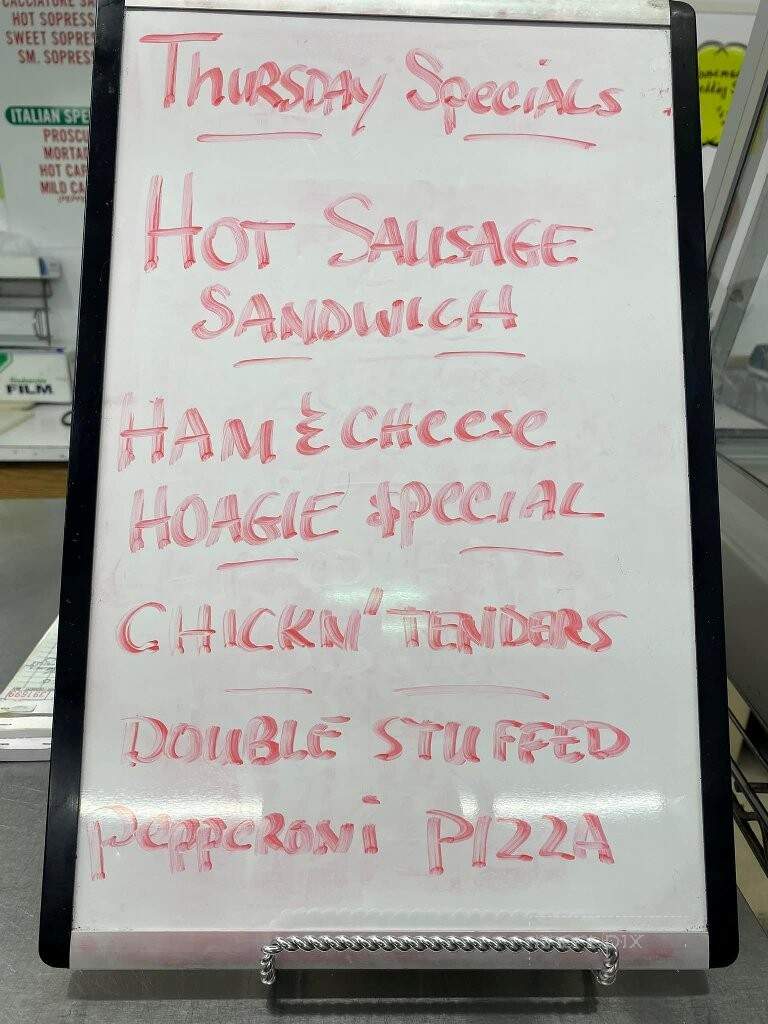 CACCIATORE SA
HOT SOPRESS
SWEET SOPRES
SM. SOPRESS
ITALIAN SPE
PROSCU
MORTAD
HOT CAP
MILD CA
FILM
THURSDAY SPECIALS
HOT SAUSAGE
SANDWICH
HAM & CHEESE
HOAGIE SPECIAL
CHICKN' TENDERS
DOUBLE STUFFED
PEPPERONI PIZZA